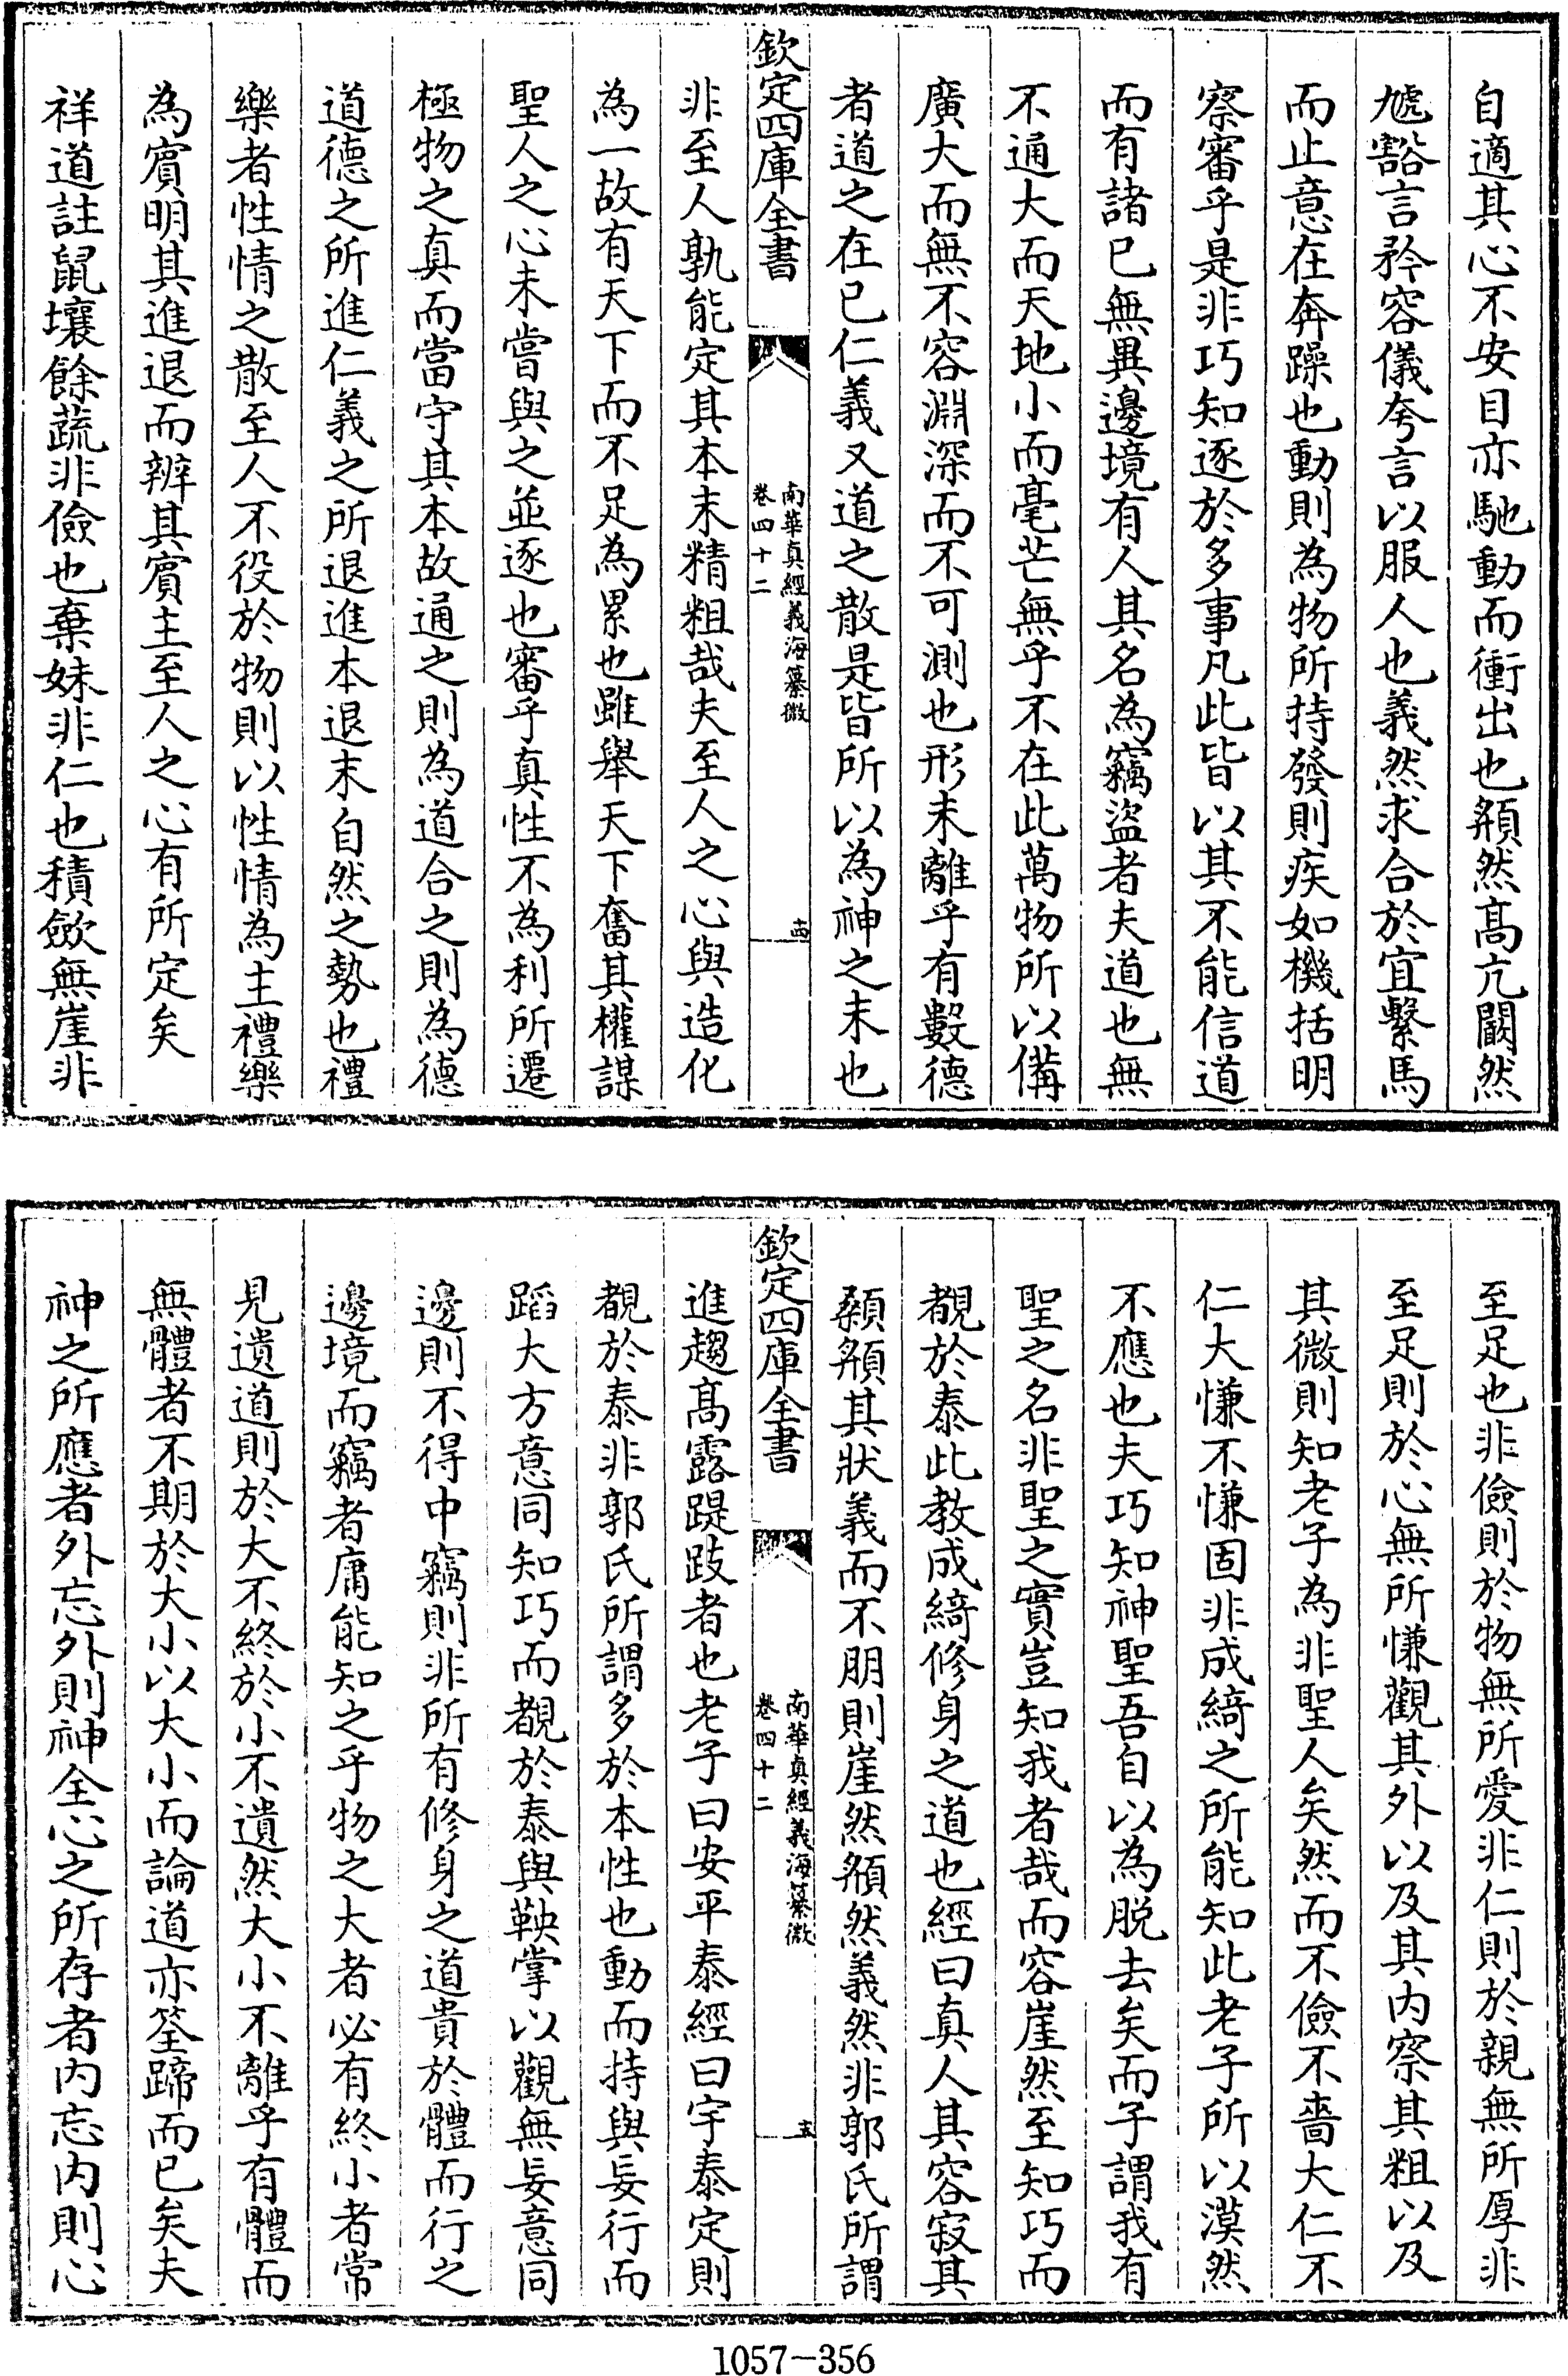 自適其心不安目亦馳動而衝出也頯然髙亢闞然
虓豁言矜容儀夸言以服人也義然求合於宜繫馬
而止意在奔躁也動則為物所持發則疾如機括明
察審乎是非巧知逐於多事凡此皆以其不能信道
而有諸已無異邊境有人其名為竊盜者夫道也無
不通大而天地小而毫芒無乎不在此萬物所以備
廣大而無不容淵深而不可測也形未離乎有數德
者道之在已仁義又道之散是皆所以為神之末也
欽定四庫全書
南華真經義海纂微
卷四十二
十四
非至人孰能定其本末精粗哉夫至人之心與造化
為一故有天下而不足為累也雖舉天下奮其權謀
聖人之心未嘗與之並逐也審乎真性不為利所遷
極物之真而當守其本故通之則為道合之則為德
道德之所進仁義之所退進本退末自然之勢也禮
樂者性情之散至人不役於物則以性情為主禮樂
為賓明其進退而辨其賓主至人之心有所定矣
祥道註鼠壤餘蔬非儉也棄妹非仁也積歛無崖非
至足也非儉則於物無所愛非仁則於親無所厚非
至足則於心無所慊觀其外以及其内察其粗以及
其微則知老子為非聖人矣然而不儉不嗇大仁不
仁大慊不慊固非成綺之所能知此老子所以漠然
不應也夫巧知神聖吾自以為脱去矣而子謂我有
聖之名非聖之實豈知我者哉而容崖然至知巧而
覩於泰此教成綺修身之道也經曰真人其容寂其
顙頯其狀義而不朋則崖然頯然義然非郭氏所謂
欽定四庫全書
南華真經義海纂微
卷四十二
十五
進趨髙露踶跂者也老子曰安平泰經曰宇泰定則
覩於泰非郭氏所謂多於本性也動而持與妄行而
蹈大方意同知巧而覩於泰與鞅掌以觀無妄意同
邊則不得中竊則非所有修身之道貴於體而行之
邊境而竊者庸能知之乎物之大者必有終小者常
見遺道則於大不終於小不遺然大小不離乎有體而
無體者不期於大小以大小而論道亦筌蹄而已矣夫
神之所應者外忘外則神全心之所存者内忘内則心
1057-356